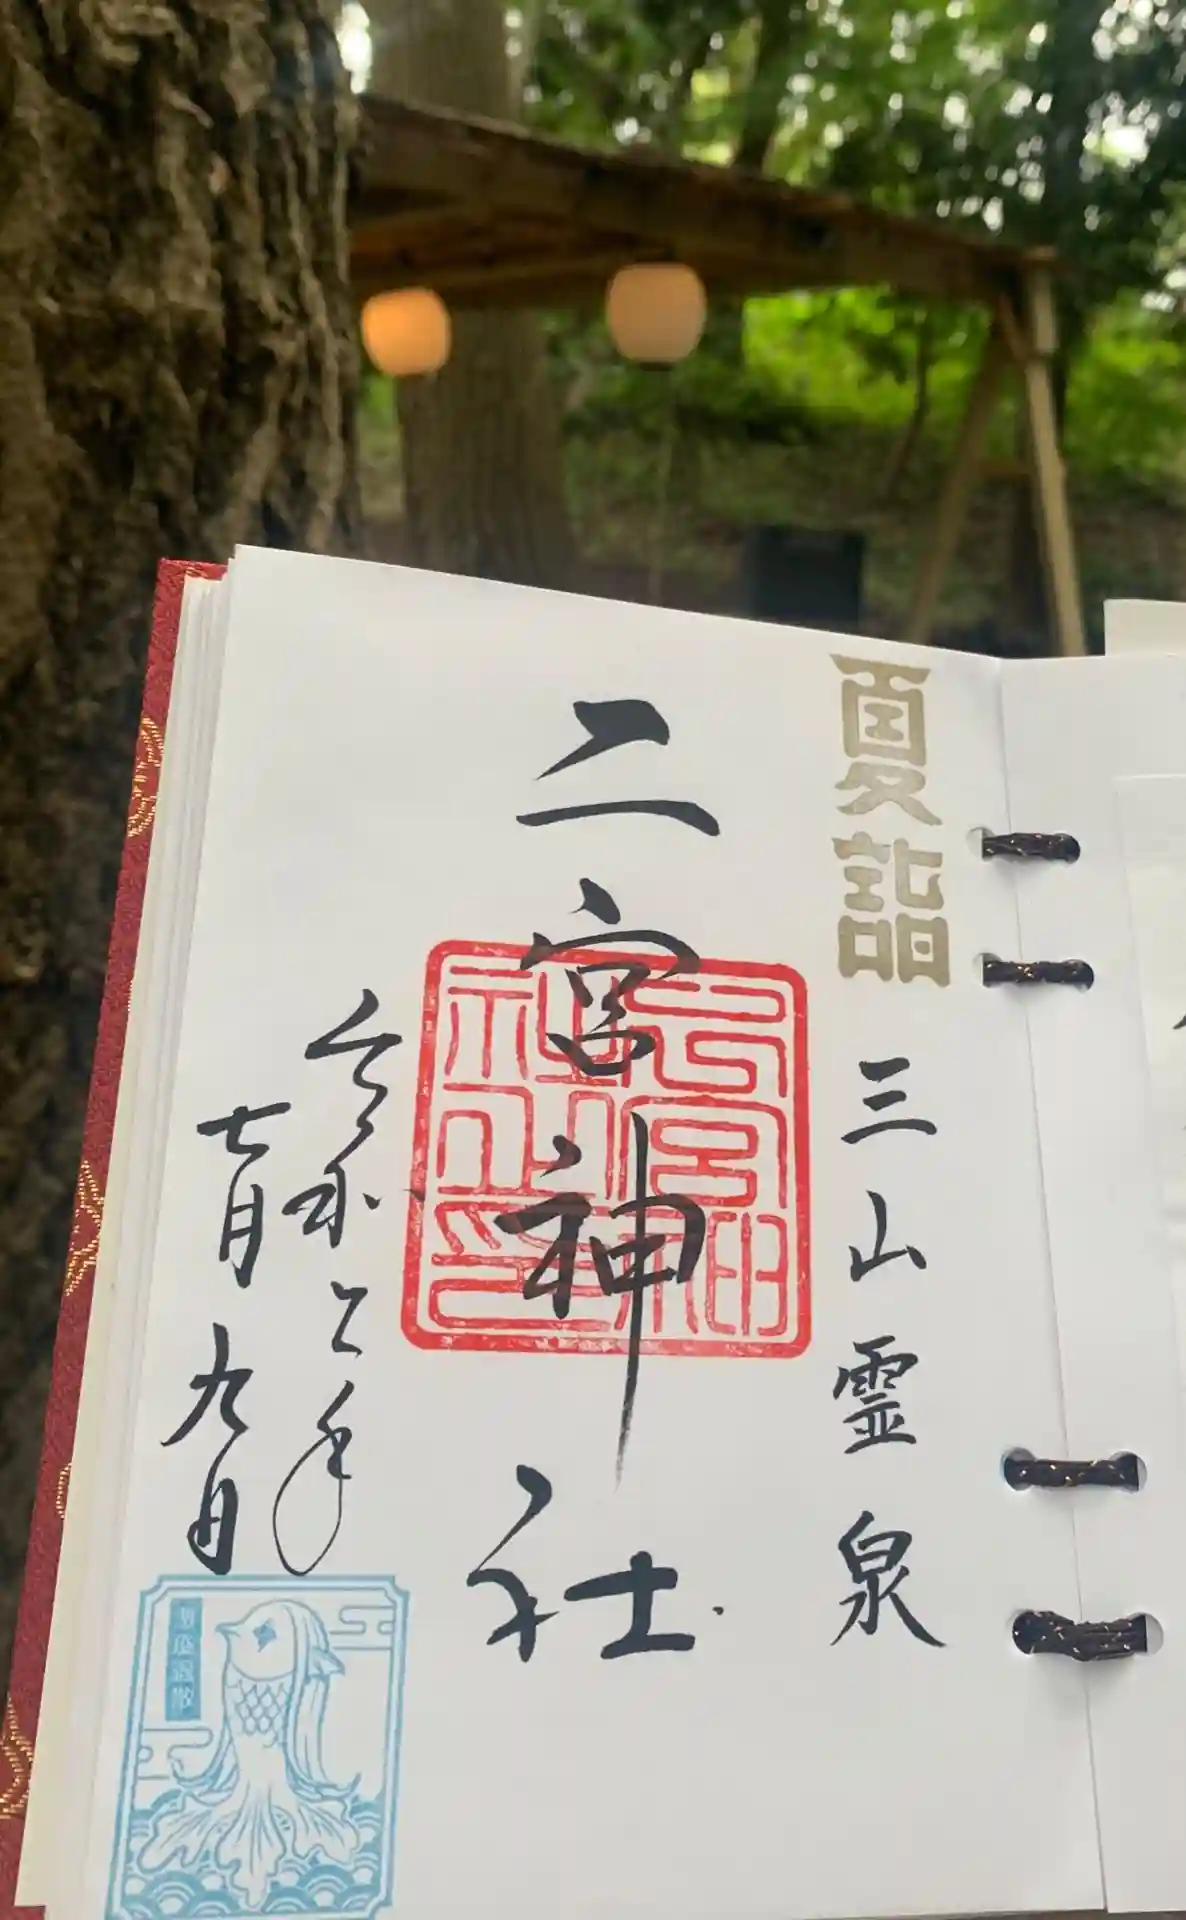 夏詣
三山霊泉
二宮神社
二宮神社之印
令和二年
七月九日